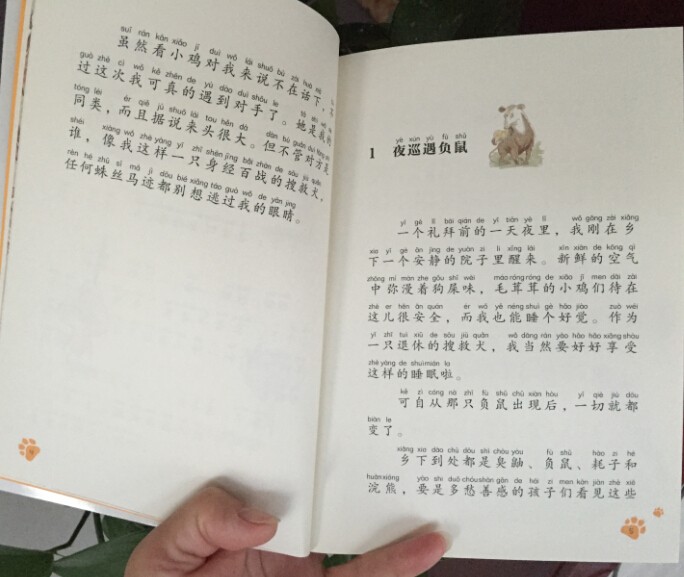 虽然看小鸡对我来说不在话下，不
过这次我可真的遇到对手了。她是我的
同类，而且据说来头很大。但不管对方是
谁，像我这样一只身经百战的搜救犬，
任何蛛丝马迹都别想逃过我的眼睛。
yè xún yù fù shǔ
1 夜巡遇负鼠
yí gè lǐ bài qián de yì tiān yè lǐ wǒ gāng zài xiāng
一个礼拜前的一天夜里，我刚在乡
xià yí gè ān jìng de yuàn zi lǐ xǐng lái xīn xiān de kōng qì
下一个安静的院子里醒来。新鲜的空气
zhōng mí màn zhe gǒu shǐ wèi máo róng róng de xiǎo jī men dāi zài
中弥漫着狗屎味，毛茸茸的小鸡们待在
zhè er hěn ān quán ér wǒ yě néng shuì gè hǎo jiào zuò wéi
这儿很安全，而我也能睡个好觉。作为
yì zhī tuì xiū de sōu jiù quǎn wǒ dāng rán yào hǎo hǎo xiǎng shòu
一只退休的搜救犬，我当然要好好享受
zhè yàng de shuì mián la
这样的睡眠啦。
kě zì cóng nà zhī fù shǔ chū xiàn hòu yí qiè jiù dōu
可自从那只负鼠出现后，一切就都
biàn le
变了。
xiāng xia dào chù dōu shì chòu yòu fù shǔ hào zi hé
乡下到处都是臭鼬、负鼠、耗子和
huàn xióng yào shi duō chóu shàn gǎn de hái zi men kàn jiàn zhè xiē
浣熊，要是多愁善感的孩子们看见这些